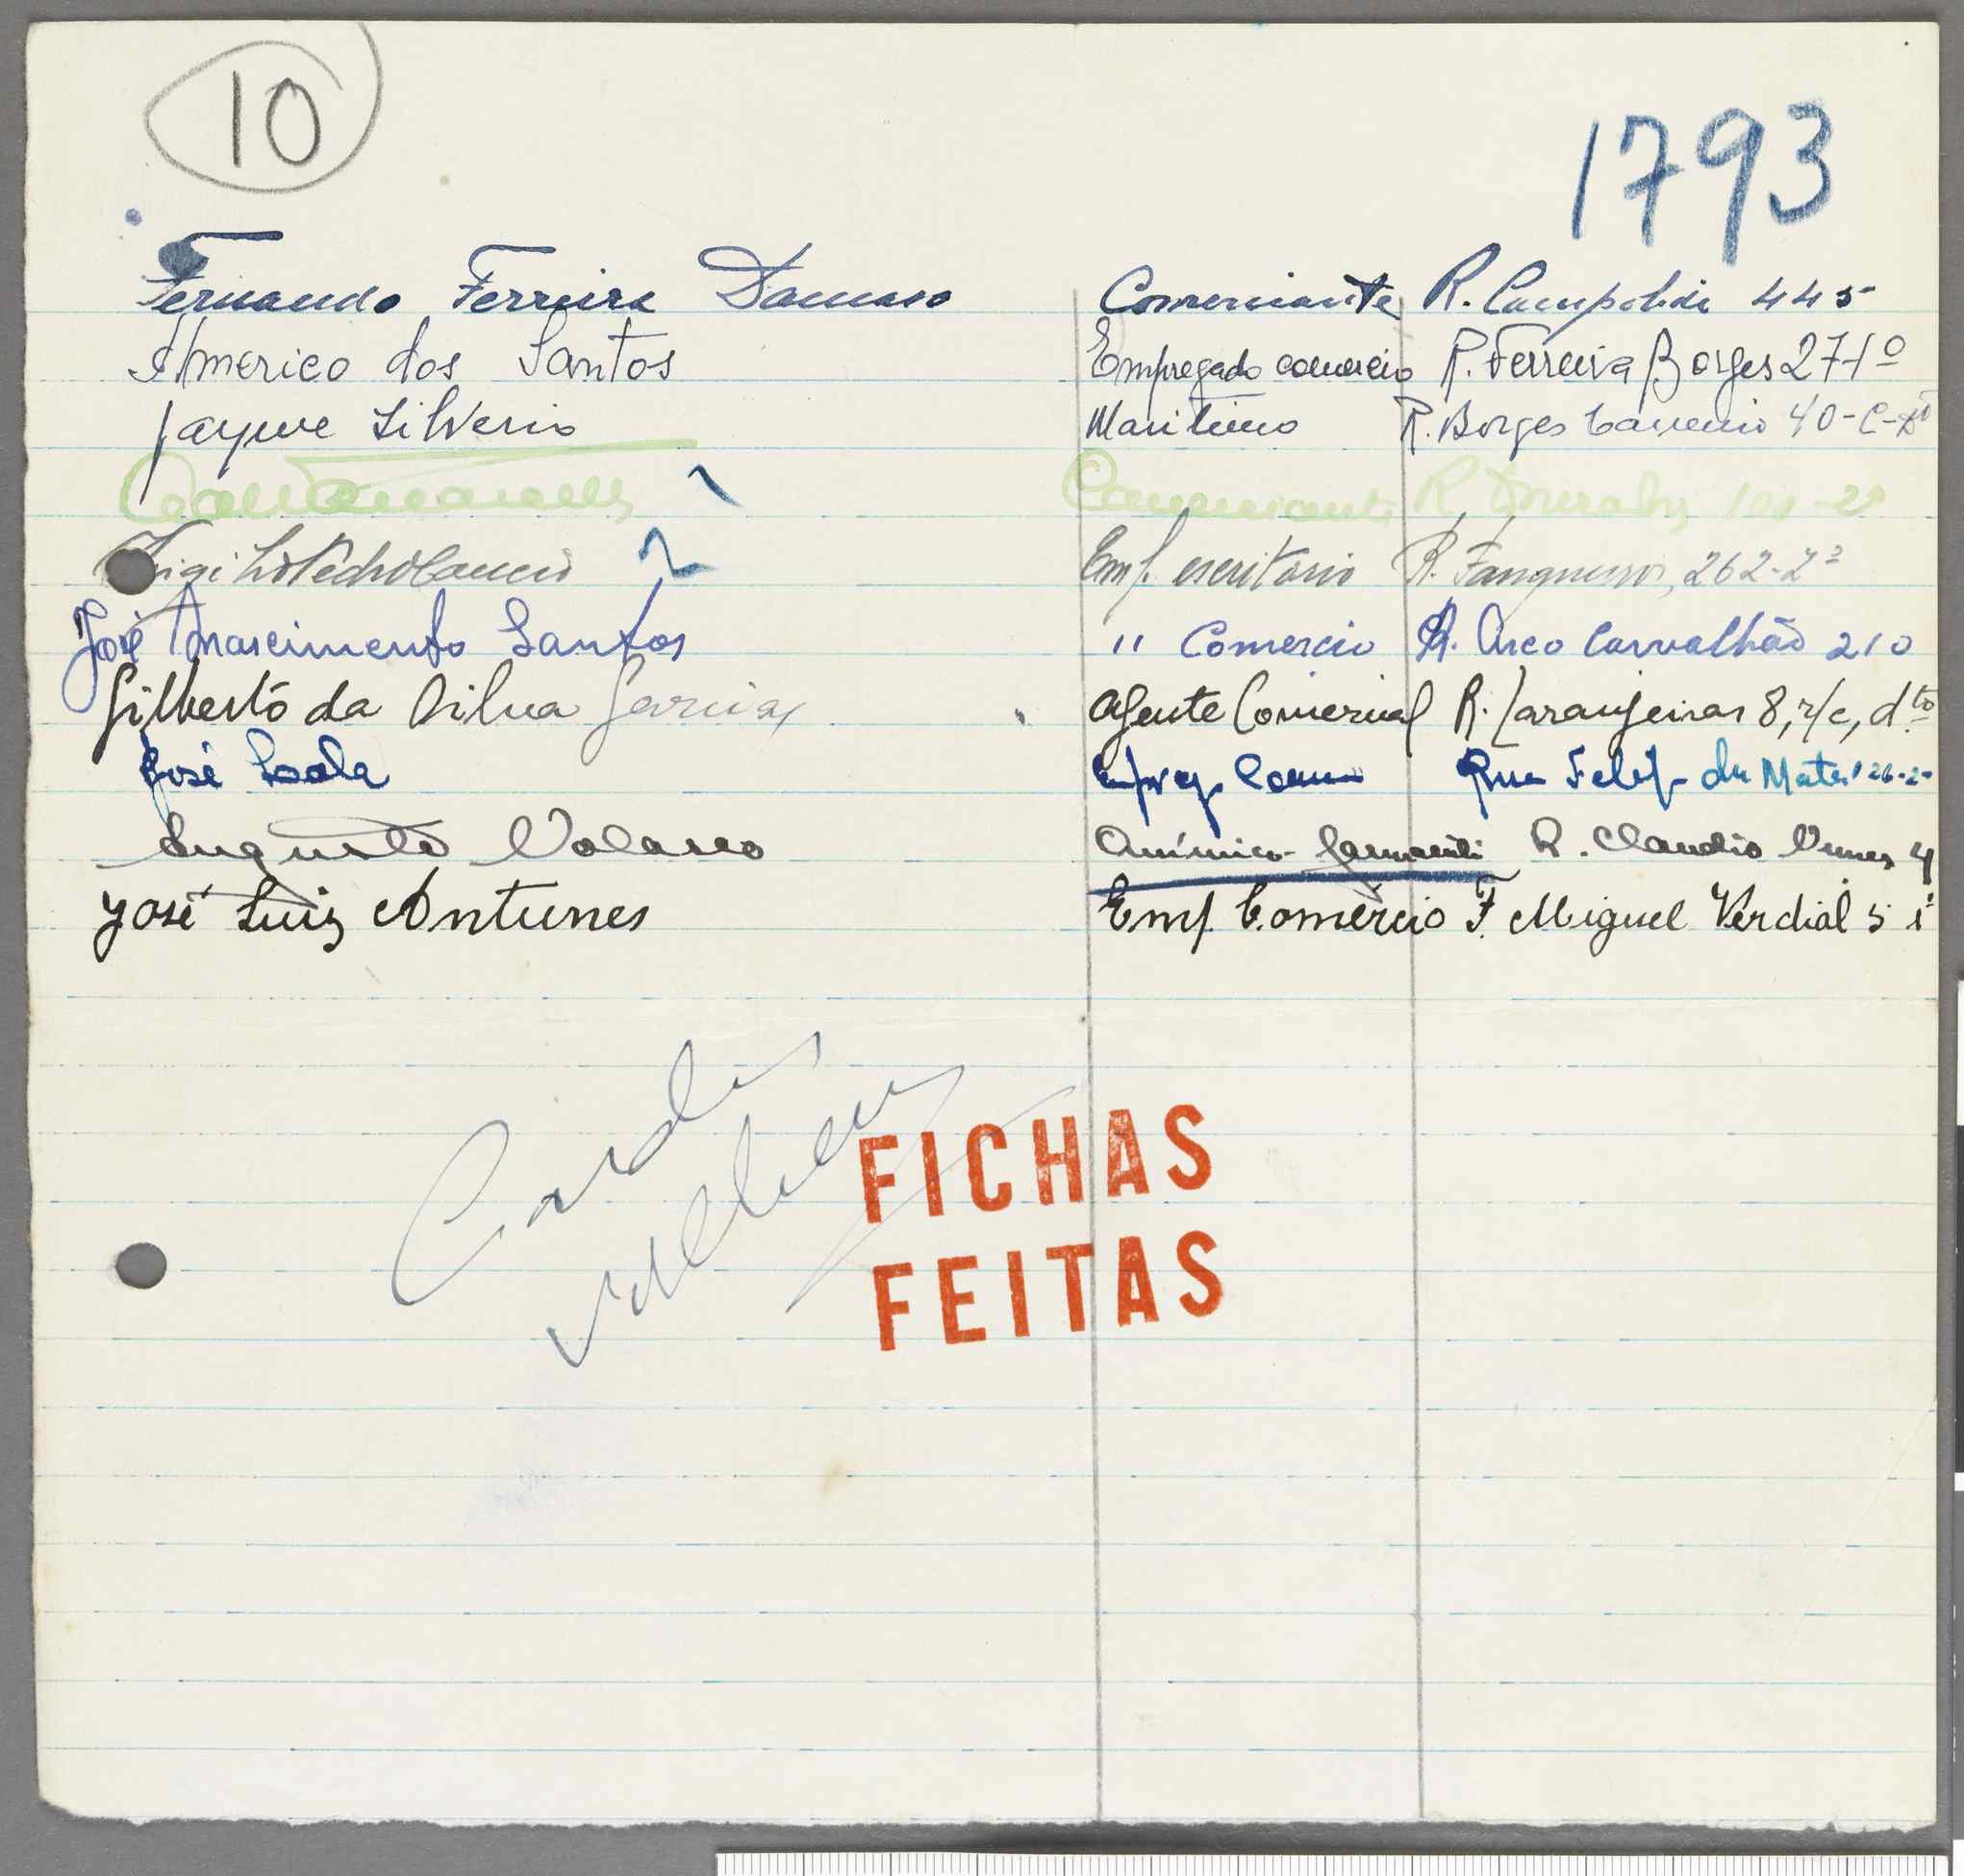 10
1793
Fernando Ferreira Damaso Comerciante R. Campolide 445
Americo dos Santos Empregado comercio R. Ferreira Borges 27-1º
Jayme Silverio Maritimo R. Borges Carneiro 40-C-Dtº
Comerciante R. Douradores
Emp. escritorio R. Fanqueiros, 262-2º
José Nascimento Santos " Comercio R. Arco Carvalhão 210
Gilberto da Silva Agente Comercial R. Laranjeiras 8, r/c, dto
José Empreg. Com Rua Filip. da Mata 26-2º
Augusto Volasco Químico R. Claudio Nunes
José Luis Antunes Emp. Comercio F. Miguel Verdial 5 1º
FICHAS
FEITAS